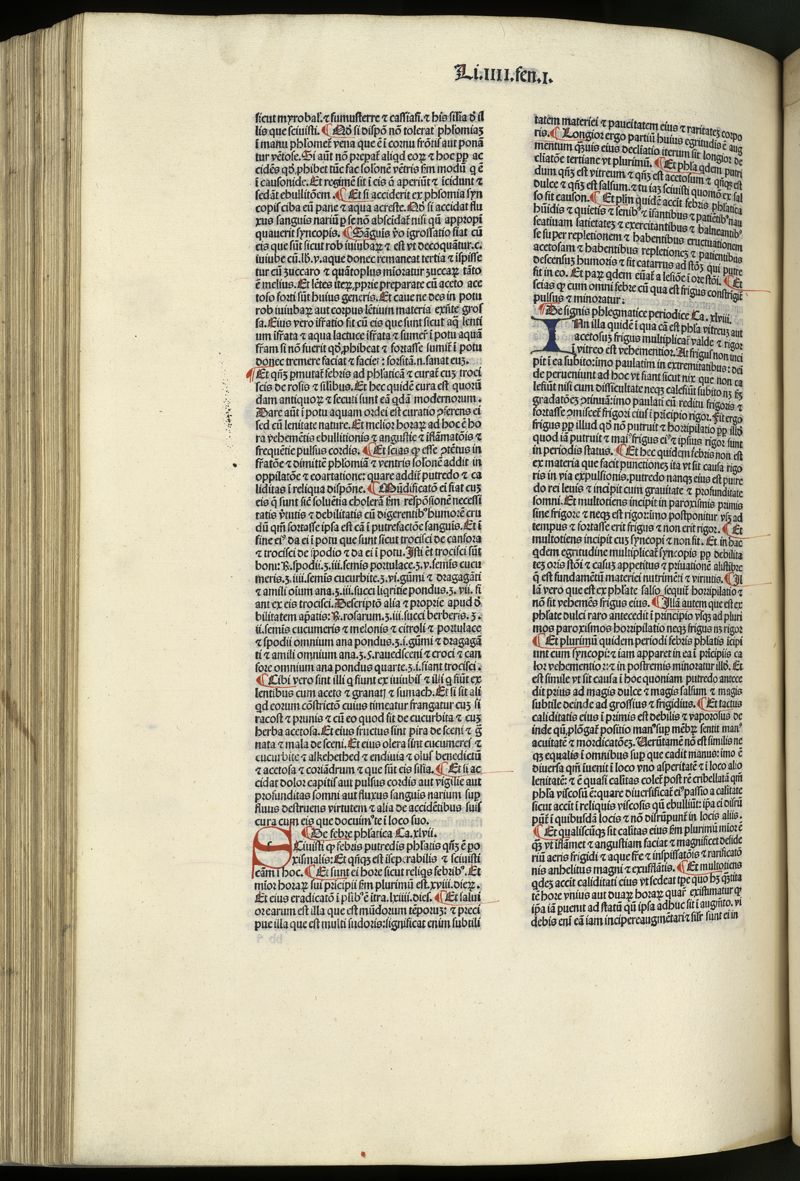 Li.IIII.fen.I.
sicut myrobal. ⁊ fumusterre ⁊ cassiafi. ⁊ his silia ð il
lis que sciuisti. ¶ Nō si dispō nō tolerat phlomiaz
ī manu phlomet vena que ē ī cornu frōtis aut ponā
tur vētose. Si aūt nō prepat aliqd eoꝝ ⁊ hoc ꝓp ac
cidēs qð phibet tūc fac solonē vētris ẜm modū q ē
ī causonide. Et regimē sit ī eis ō aperiūt ⁊ īcidunt ⁊
sedāt ebullitōem. ¶ Et si acciderit ex phlomia syn
copis ciba eū pane ⁊ aqua acreste. Nō si accidat flu
xus sanguis nariū ꝑ se nō abscidat nisi qū appropi
quauerit syncopis. ¶ Sāguis vo igrossatio fiat cū
eis que sūt sicut rob iuiubaꝝ ⁊ est vt decoquātur.c.
iuiube cū.lb.v. aque donec remaneat tertia ⁊ ispisse
tur cū zuccaro ⁊ quātoplus mioratur zuccaꝝ tāto
ē melius. Et lētes iteꝝ. pprie preparate cū aceto ace
toso forti sūt huius generis. Et caue ne des in potu
rob iuiubaꝝ aut corpus lētiuim materia exn̄te gros
sa. Eius vero ifratio fit cū eis que sunt sicut aq̄ lenti
um ifrata ⁊ aqua lactuce ifrata ⁊ sumet ī potu aquā
fram si nō fuerit qð phibeat ⁊ fortasse sumit ī potu
donec tremere faciat ⁊ facie: forsitā.n. sanat euz.
¶ Et qn̄z pmutat febris ad phlaticā ⁊ curat euz troci
scis de rosis ⁊ silibus. Et hec quidē cura est quorū
dam antiquoꝝ ⁊ secuti sunt eā qdā modernorum.
Dare aūt ī potu aquam ordei est curatio ꝯferens ei
sed cū lenitate nature. Et melior horaꝝ ad hoc ē ho
ra vehemētis ebullitionis ⁊ angustie ⁊ istāmatōis ⁊
frequētie pulsus cordis. ¶ Et scias ꝙ esse ꝯtētus in
fratōe ⁊ dimitē phlomiā ⁊ ventris solonē addit in
oppilatōne ⁊ coartatione: quare addit putredo ⁊ ca
liditas ī reliqua dispōne. ¶ Mūdificatō ei fiat cuz
eis q̄ sunt sic soluētia cholerā ẜm respōsionē necessi
tatis vtutis ⁊ debilitatis cū digerentib⁹ humorē cru
dū qn̄ fortasse ipsa est cā ī putrefactōe sanguis. Et ī
fine ei⁹ da ei ī potu que sunt sicut trocisci de canfora
⁊ trocisci de spodio ⁊ da ei ī potu. Isti et trocisci sūt
boni: ℞. spodii.ʒ.iii. semis portulace.ʒ.v. semis cucu
meris.ʒ.iiii. semis cucurbite.ʒ.vi. gūmi ⁊ dragagāti
⁊ amili oium ana.ʒ.iii. succi liqritie pondus.ʒ.vii. fi
ant ex eis trocisci. Descriptō alia ⁊ proprie apud ð
bilitatem apatis: ℞. rosarum.ʒ.iii. succi berberis.ʒ.
ii. semis cucumeris ⁊ melonis ⁊ citroli ⁊ portulace
⁊ spodii omnium ana pondus.ʒ.i. gūmi ⁊ dragagā
ti ⁊ amili omnium ana.ʒ.s. rauedsceni ⁊ croci ⁊ can
fore omnium ana pondus quarte.ʒ.i. fiant trocisci.
¶ Cibi vero sint illi q̄ fiunt ex iuiubis ⁊ illi q̄ fiūt ex
lentibus cum aceto ⁊ granatis ⁊ sumach. Et si sit ali
qd eorum cōstrictō cuius timeatur frangatur cuz si
racost ⁊ prunis ⁊ cū eo quod fit de cucurbita ⁊ cuz
herba acetosa. Et eius fructus sint pira de seni ⁊ g̃
nata ⁊ mala de sceni. Et eius olera sint cucumeres ⁊
cucurbite ⁊ alkehetbed ⁊ endiuia ⁊ olus benedictū
⁊ acetosa ⁊ coriādrum ⁊ que sūt eis silia. ¶ Et si ac
cidat dolor capitis aut pulsus cordis aut vigilie aut
profunditas somni aut fluxus sanguis narium sup
fluus destruens virtutem ⁊ alia de accidētibus suis
cura cum eis que docuim⁹ te ī loco suo.
¶ De febre phlatica Ca.xlvii.
Sciuisti ꝙ febris putredis phlatis qn̄z ē po
xismalis: Et qn̄qz est isepabilis ⁊ sciuisti
cām ī hoc. ¶ Et sunt ei hore sicut reliqs febrib⁹. Et
mior horaꝝ sui prīcipii ẜm plurimū est.xviii. dieꝝ.
Et eius eradicatō ī plib⁹ ē itra.lx iiii. dies. ¶ Et salui
orearum est illa que est mūdorum tēporuz: ⁊ preci
pue illa que est multi sudoris: significat enim subtili
tatem materiei ⁊ paucitatem eius ⁊ raritatez corpo
ris. ¶ Longior ergo partiū huius egritudis ē aug
mentum q̄uis eius decliatio iterum sit longior de
cliatōne tertiane vt plurimū. ¶ Et phla qdem putri
dum qn̄z est vitreum ⁊ qn̄z est acetosum ⁊ qn̄qz est
dulce ⁊ qn̄z est salsum. ⁊ tu iaz sciuisti quomō ex sal
so fit causon. ¶ Et plm quidē accit febris phlatica
hūidis ⁊ quietis ⁊ senib⁹ ⁊ ifantibus ⁊ patientib⁹ nau
seatiuam satietatez ⁊ exercitantibus ⁊ balneantib⁹
se super repletionem ⁊ habentibus eructuationem
acetosam ⁊ habentibus repletionez ⁊ patientibus
descensus humoris ⁊ sit catarrus ad stōz qui putre
fit in eo. Et paꝝ qdem euāt a lesiōe ī ore stōi. ¶ Et
scias ꝙ cum omni febre cū qua est frigus constrigit
pulsus ⁊ minoratur:
¶ De signis phlegmatice periodice Ca. xlviii.
IAn illa quidē ī qua cā est phla vitreus aut
acetosus frigus multiplicat valde ⁊ rigor
ī vitreo est vehementior. At frigus non inci
pit ī ea subito: imo paulatim in extremitatibus: dei
de perueniunt ad hoc vt fiant sicut nix que non ca
lefiūt nisi cum difficultate neqz calefiūt subito nz ẜm
gradatōez ꝯtinuā: imo paulati cū reditu frigoris ⁊
fortasse ꝯmiscet frigori eius ī prīcipio rigor. Fit ergo
frigus ꝓp illud qð nō putruit ⁊ horripilatio ꝓp illð
quod iā putruit ⁊ mai⁹ frigus ei⁹ ⁊ ipsius rigor sunt
in periodis status. ¶ Et hec quidem febris non est
ex materia que facit punctiones ita vt sit causa rigo
ris in via expulsionis. putredo nanqz eius est putre
do rei lenis ⁊ incipit cum grauitate ⁊ profunditate
somni. Et multotiens incipit in paroxismis primis
sine frigore ⁊ neqz est rigor: imo postponitur vsqz ad
tempus ⁊ fortasse erit frigus ⁊ non erit rigor. ¶ Et
multotiens incipit cuz syncopi ⁊ non fit. Et in hac
qdem egritudine multiplicat syncopis ꝓp debilita
tez oris stōi ⁊ casuz appetitus ⁊ priuationē alistibre
q̄ est fundamētū materiei nutrimēti ⁊ virtutis. ¶ Il
la vero que est ex phlate salso sequit horripilatio ⁊
nō fit vehemēs frigus eius. ¶ Illā autem que est ex
phlate dulci raro antecedit ī principio vsqz ad pluri
mos paroxismos horripilatio neqz frigus nz rigor
¶ Et plurimū quidem periodi febris phlatis icipi
unt cum syncopi: ⁊ iam apparet in ea ī prīcipiis ca
lor vehementior: ⁊ in postremis minoratur illð. Et
est simile vt sit causa ī hoc quoniam putredo antece
dit prius ad magis dulce ⁊ magis salsum ⁊ magis
subtile deinde ad grossius ⁊ frigidius. ¶ Et tactus
caliditatis eius ī primis est debilis ⁊ vaporosus de
inde qn̄. plōgat positio man⁹ sup mēbꝝ sentit man⁹
acuitatē ⁊ mordicatōez. Ueritamē nō est similis ne
qz equalis ī omnibus sup que cadit manus: imo ē
diuersa qm̄ iuenit ī loco vno asperitatē ⁊ ī loco alio
lenitatē: ⁊ ē quasi calitas colet post rē cribellatā qm̄
phla viscosū ē: quare diuersificat ei⁹ passio a calitate
sicut accit ī reliquis viscosis qn̄ ebulliūt: ipa ei disrū
pūt ī quibusdā locis ⁊ nō disrūpunt in locis aliis.
¶ Et qualiscūqz sit calitas eius ẜm plurimū mior ē
qz vt istamet ⁊ angustiam faciat ⁊ magnificet deside
riū aeris frigidi ⁊ aque fre ⁊ inspissatōis ⁊ rarificatō
nis anhelitus magni ⁊ exufflatis. ¶ Et multotiens
qdez accit caliditati eius vt sedeat tpe quo hz q̄tita
tē hore vnius aut duaꝝ horaꝝ quar existimatur ꝙ
ipa iā puenit ad statū qn̄ ipsa adhuc sit ī augmto. vi
debis eni eā iam incipere augmētari ⁊ silr sunt ei in